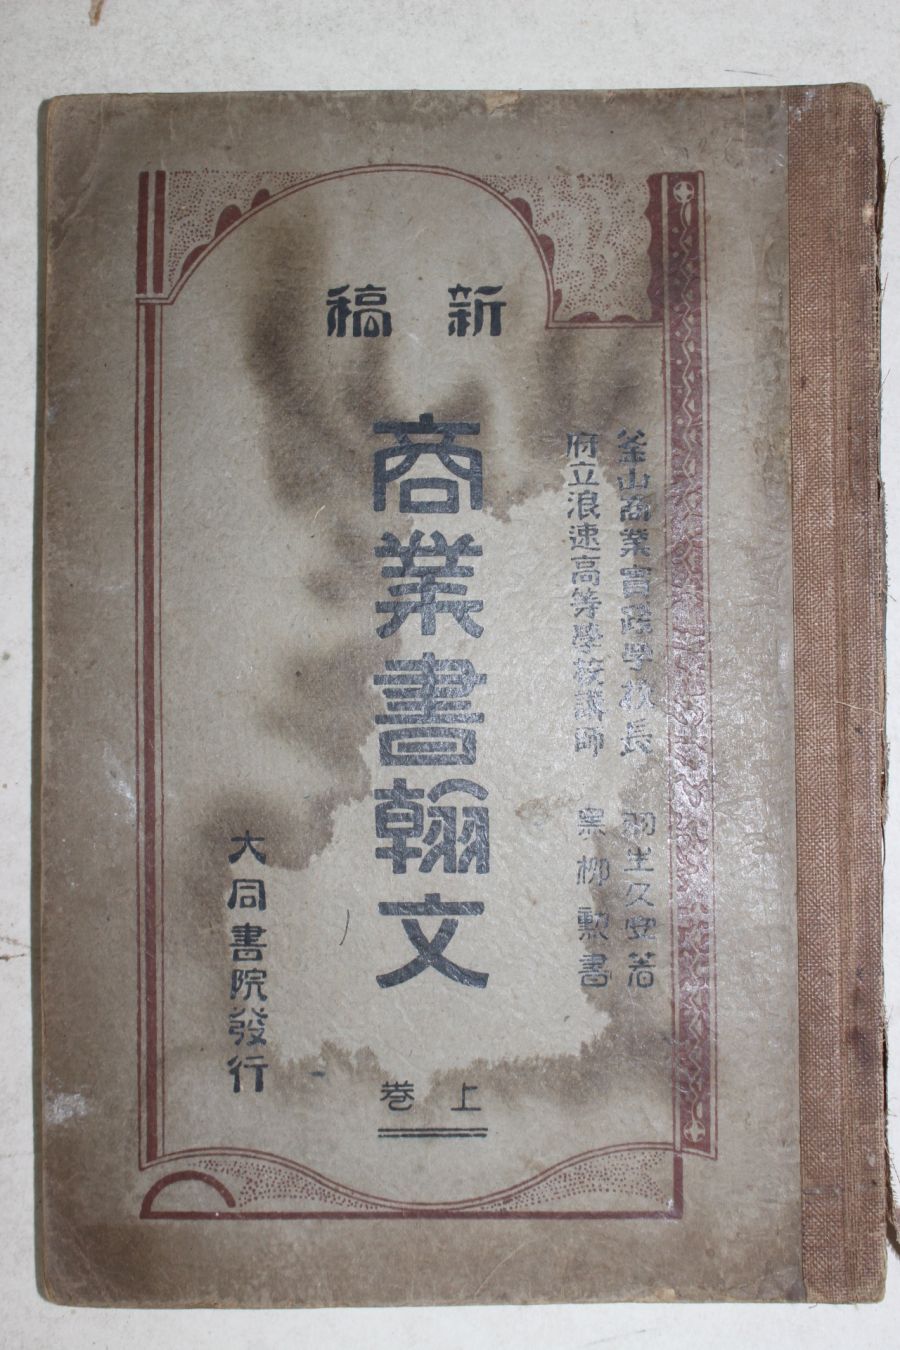 新稿
釜山商業實踐學校長 羽生久安著
府立浪速高等學校講師 黒柳勲書
商業書翰文
上巻
大同書院發行